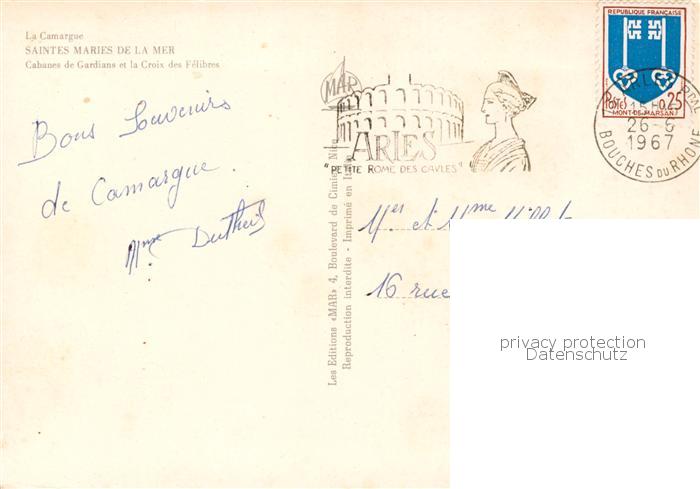 La Camargue
SAINTES MARIES DE LA MER
Cabanes de Gardians et la Croix des Félibres
Bons Souvenirs
de Camargue.
Mme Dutheil
Les Editions «MAR» 4, Boulevard de Cimiez, Nice
Reproduction interdite - Imprimé en
MAR
ARLES
"PETITE ROME DES GAULES"
REPUBLIQUE FRANÇAISE
POSTES 0,25
MONT-DE-MARSAN
26-6
1967
BOUCHES DU RHONE
Mer et Mme
16 rue
privacy protection
Datenschutz